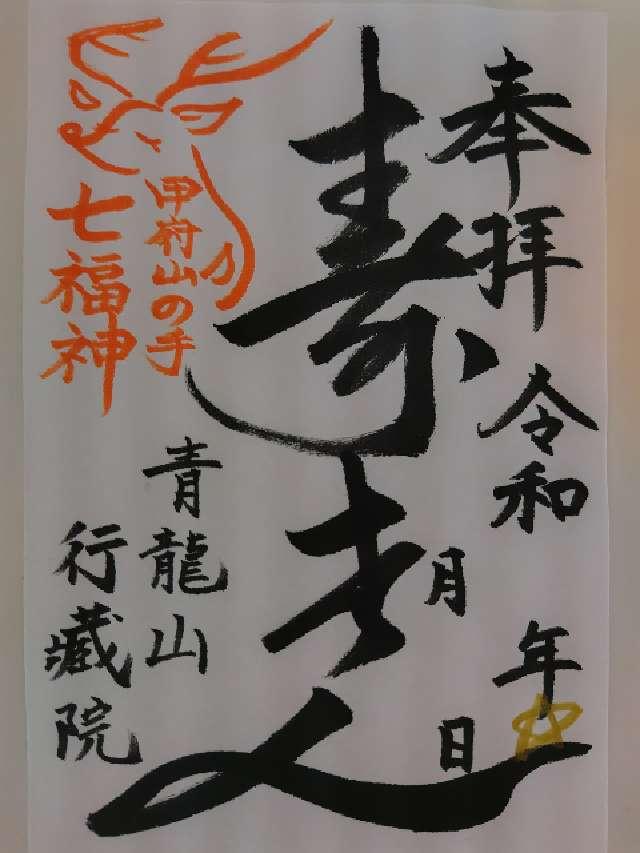 奉拝
令和 年
月 日
寿老人
甲府山の手
七福神
青龍山
行蔵院